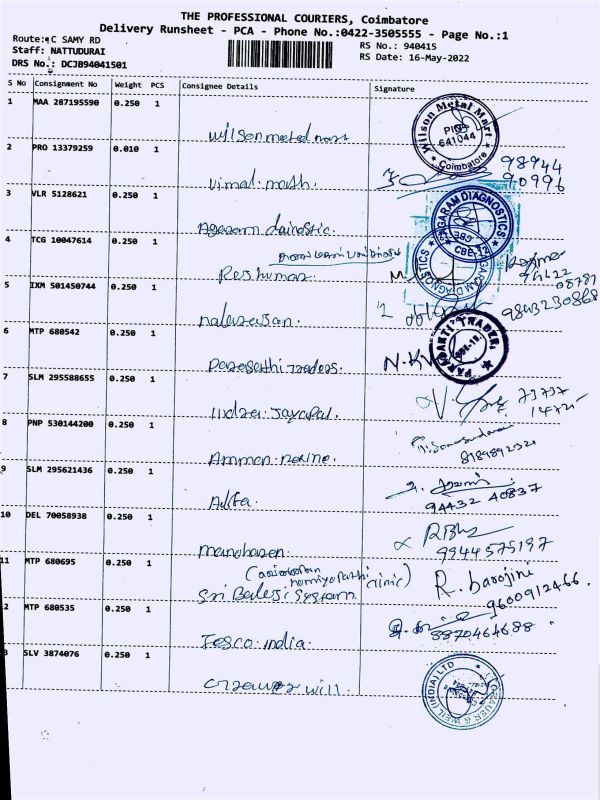 THE PROFESSIONAL COURIERS, Coimbatore
Delivery Runsheet - PCA - Phone No.:0422-3505555 - Page No.:1
Route: C SAMY RD
RS No.: 940415
Staff: NATTUDURAI
RS Date: 16-May-2022
DRS No.: DCJB94041501
S No Consignment No Weight PCS Consignee Details Signature
1 MAA 287195590 0.250 1
Wilson Metal Mart
PIN
641044
Coimbatore
Wilson metal mart
2 PRO 13379259 0.010 1
98944
90996
Vimal math.
3 VLR 5128621 0.250 1
AGARAM DIAGNOSTICS
CBE-12
Agaram dainostic.
4 TCG 10047614 0.250 1
Res.kumar
5 IXM 501450744 0.250 1
9843230868
6 MTP 680542 0.250 1
PARASAKTI TRADER
N.KV
Parasathi Traders.
7 SLM 295588655 0.250 1
73737
Indra. Jayapal.
8 PNP 530144200 0.250 1
8189892321
Amman. marine.
9 SLM 295621436 0.250 1
94432 40837
10 DEL 70058938 0.250 1
9944575197
manoharan.
11 MTP 680695 0.250 1
homiyopathi clinic)
R. barojini
9600912466.
Sri Balaji
12 MTP 680535 0.250 1
8870464688
Tesco. india.
SLV 3874076 0.250 1
& WEIL (INDIA) LTD
will.